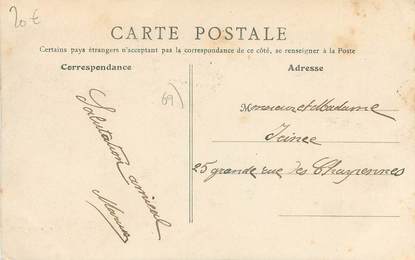 20€
CARTE POSTALE
Certains pays étrangers n'acceptant pas la correspondance de ce côté, se renseigner à la Poste
Correspondance
Adresse
69
Salutation amical
Monsieur et Madame
25 grande rue des Chapennes